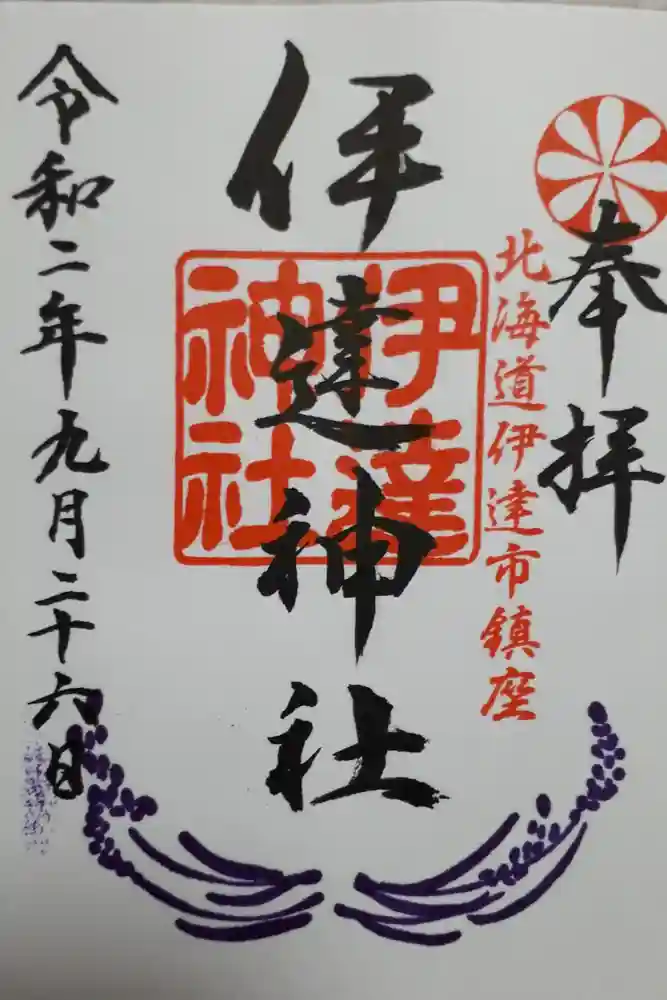 奉拝
北海道伊達市鎮座
伊達神社
伊達
神社
令和二年九月二十六日